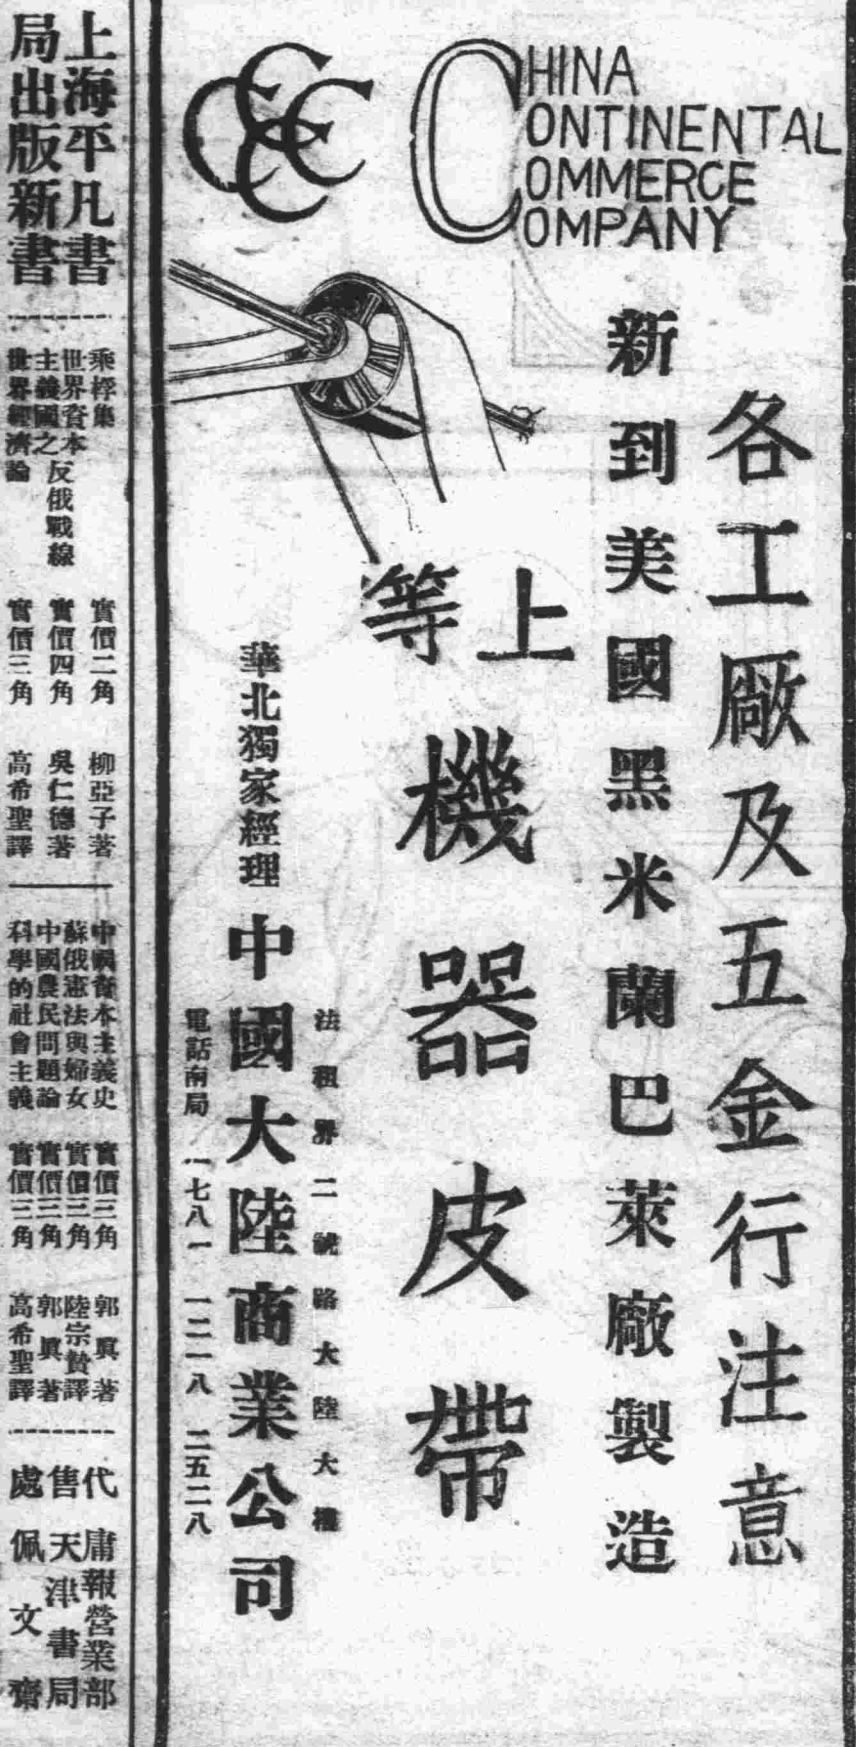 CHINA
CONTINENTAL
COMMERCE
COMPANY
CCCC
各工廠及五金行注意
新到美國黑米蘭巴萊廠製造
上等
機器皮帶
法租界二號路大陸大樓
中國大陸商業公司
華北獨家經理
電話南局 一七八一 一二一八 二五二八
上海平凡書
局出版新書
乘桴集 實價二角 柳亞子著
世界資本
主義國之
反俄戰線 實價四角 吳仁德著
世界經濟論 實價三角 高希聖譯
中國資本主義史 實價三角 郭真著
蘇俄憲法與婦女 實價三角 陸宗贄譯
中國農民問題論 實價三角 郭真著
科學的社會主義 實價三角 高希聖譯
代售處
庸報營業部
天津書局
佩文齋